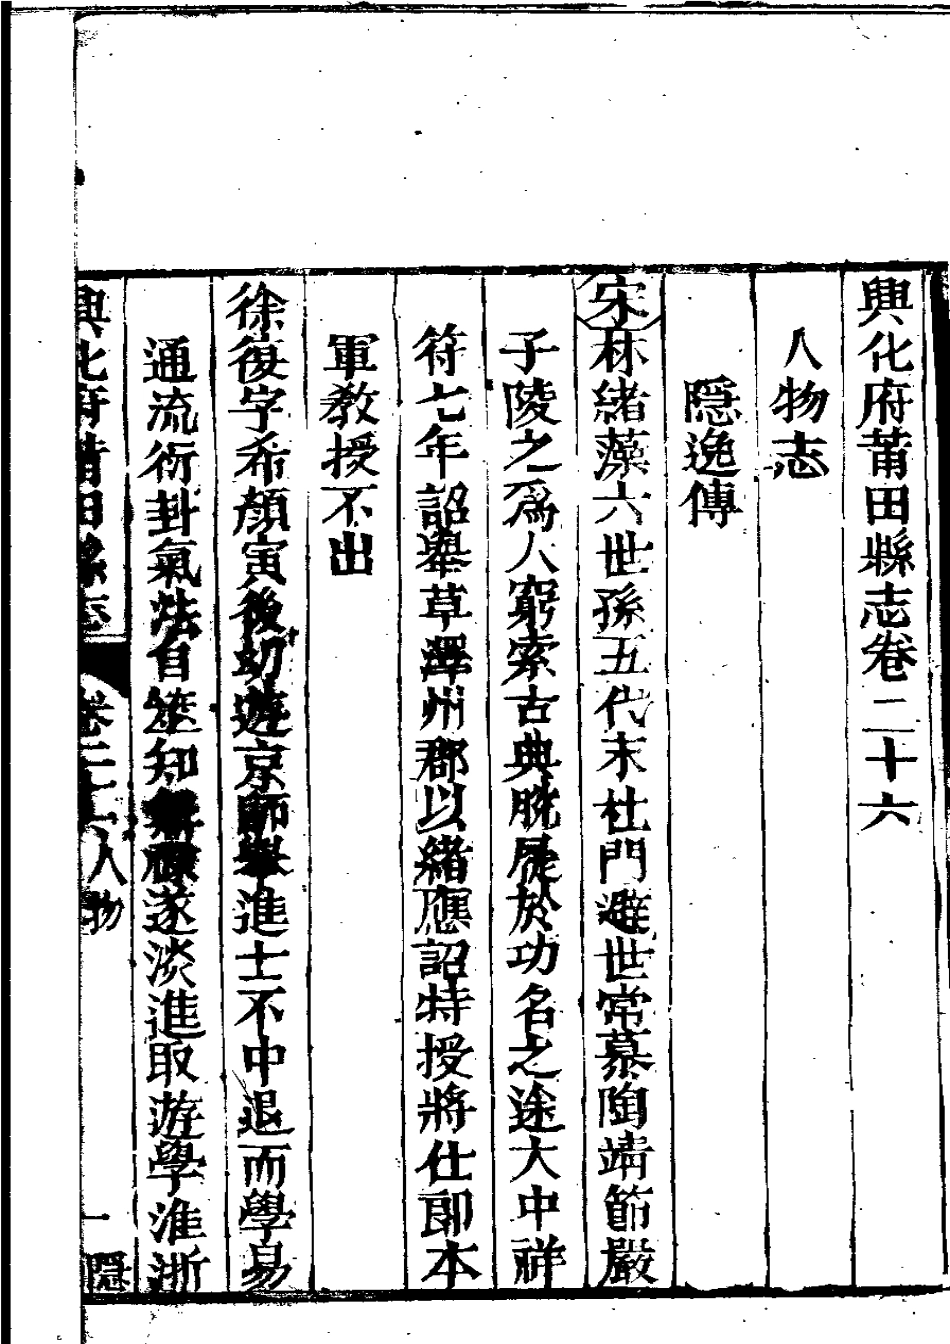 興化府莆田縣志卷二十六
人物志
隱逸傳
宋林緒藻六世孫五代末杜門避世常慕陶靖節嚴
子陵之爲人窮索古典脫屣於功名之途大中祥
符七年詔舉草澤州郡以緒應詔特授將仕郎本
軍教授不出
徐復字希顏寅後幼遊京師舉進士不中退而學易
通流衍卦氣法自筮知無祿遂淡進取遊學淮浙
興化府莆田縣志 卷二十六人物 一 隱